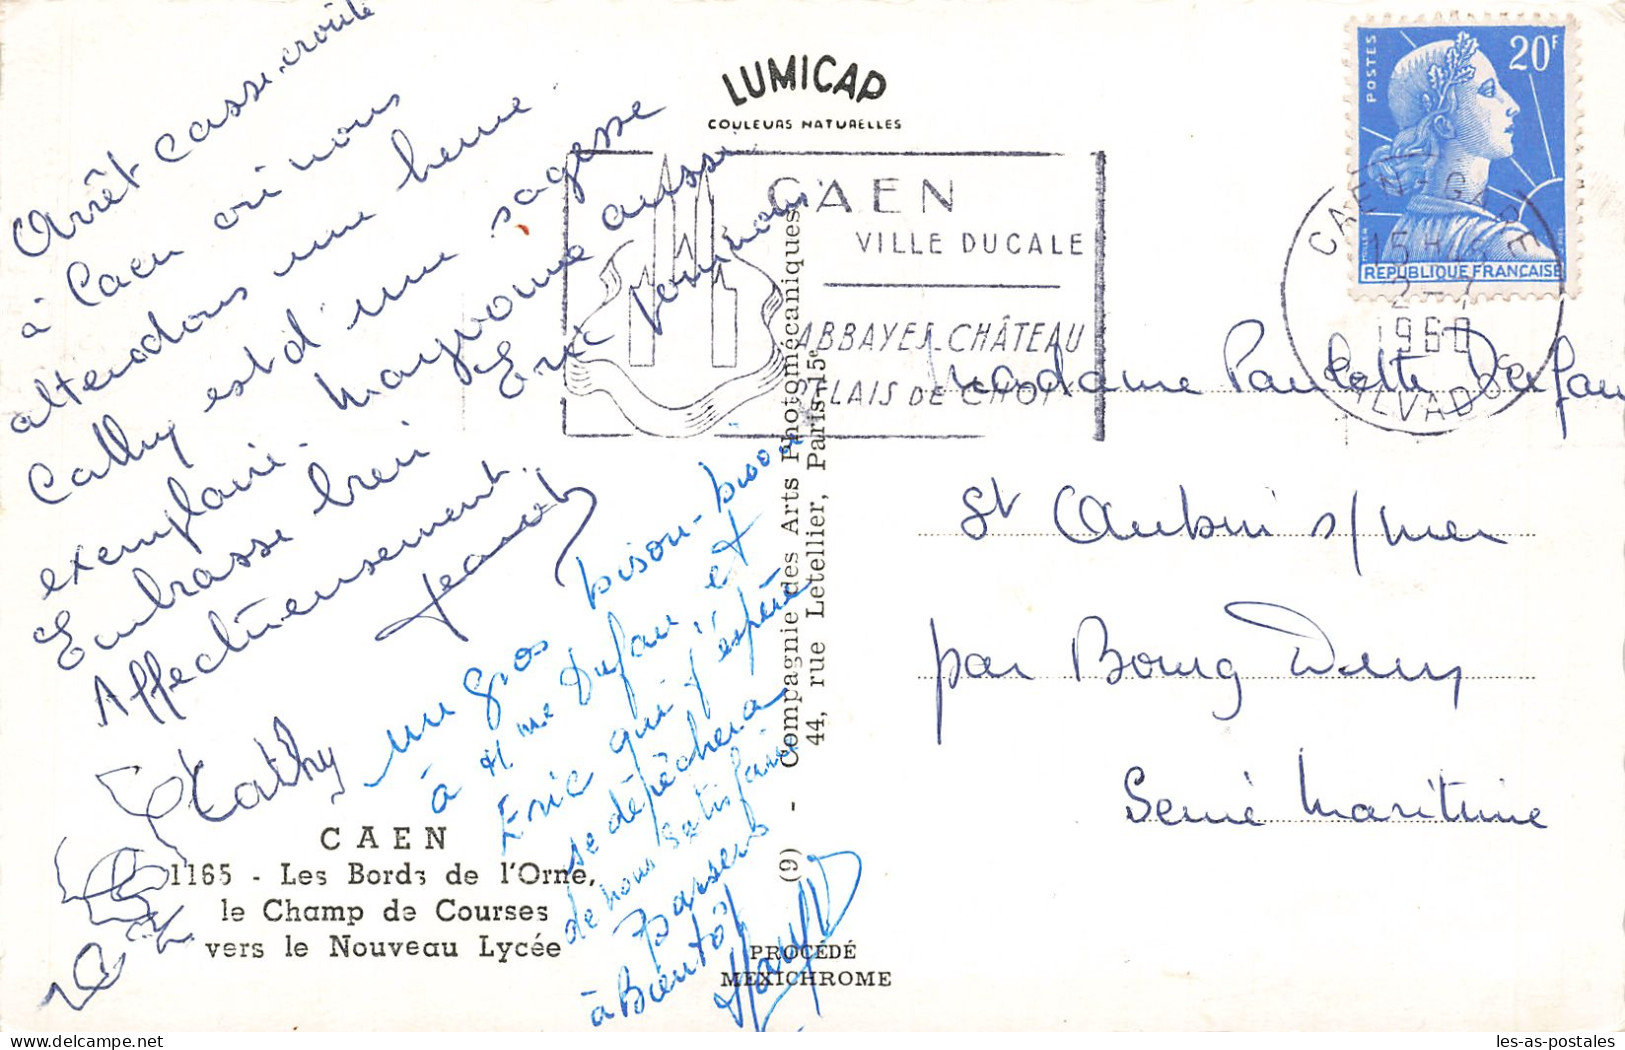 Arrêt casse-croûte
à Caen où nous
attendons une heure
Cathy est d'une sagesse
exemplaire. Mayvonne aussi
Embrasse bien Eric pour nous
Affectueusement.
Jeannot
Cathy
un gros bison-bison
à Mme Dufau et
Eric qui j'espère
se dépêchera
de nous satisfaire
à Bientôt
CAEN
1165 - Les Bords de l'Orne,
le Champ de Courses
vers le Nouveau Lycée
LUMICAP
COULEURS NATURELLES
Compagnie des Arts Photomécaniques
44, rue Letellier, Paris-15e
(9)
PROCÉDÉ
MEXICHROME
CAEN
VILLE DUCALE
ABBAYES CHÂTEAU
RELAIS DE CHOIX
POSTES
20F
REPUBLIQUE FRANÇAISE
CAEN-GARE
15H15
1960
CALVADOS
Madame Paulette Dufau
St Aubin s/mer
par Bourg Dun
Seine Maritime
les-as-postales